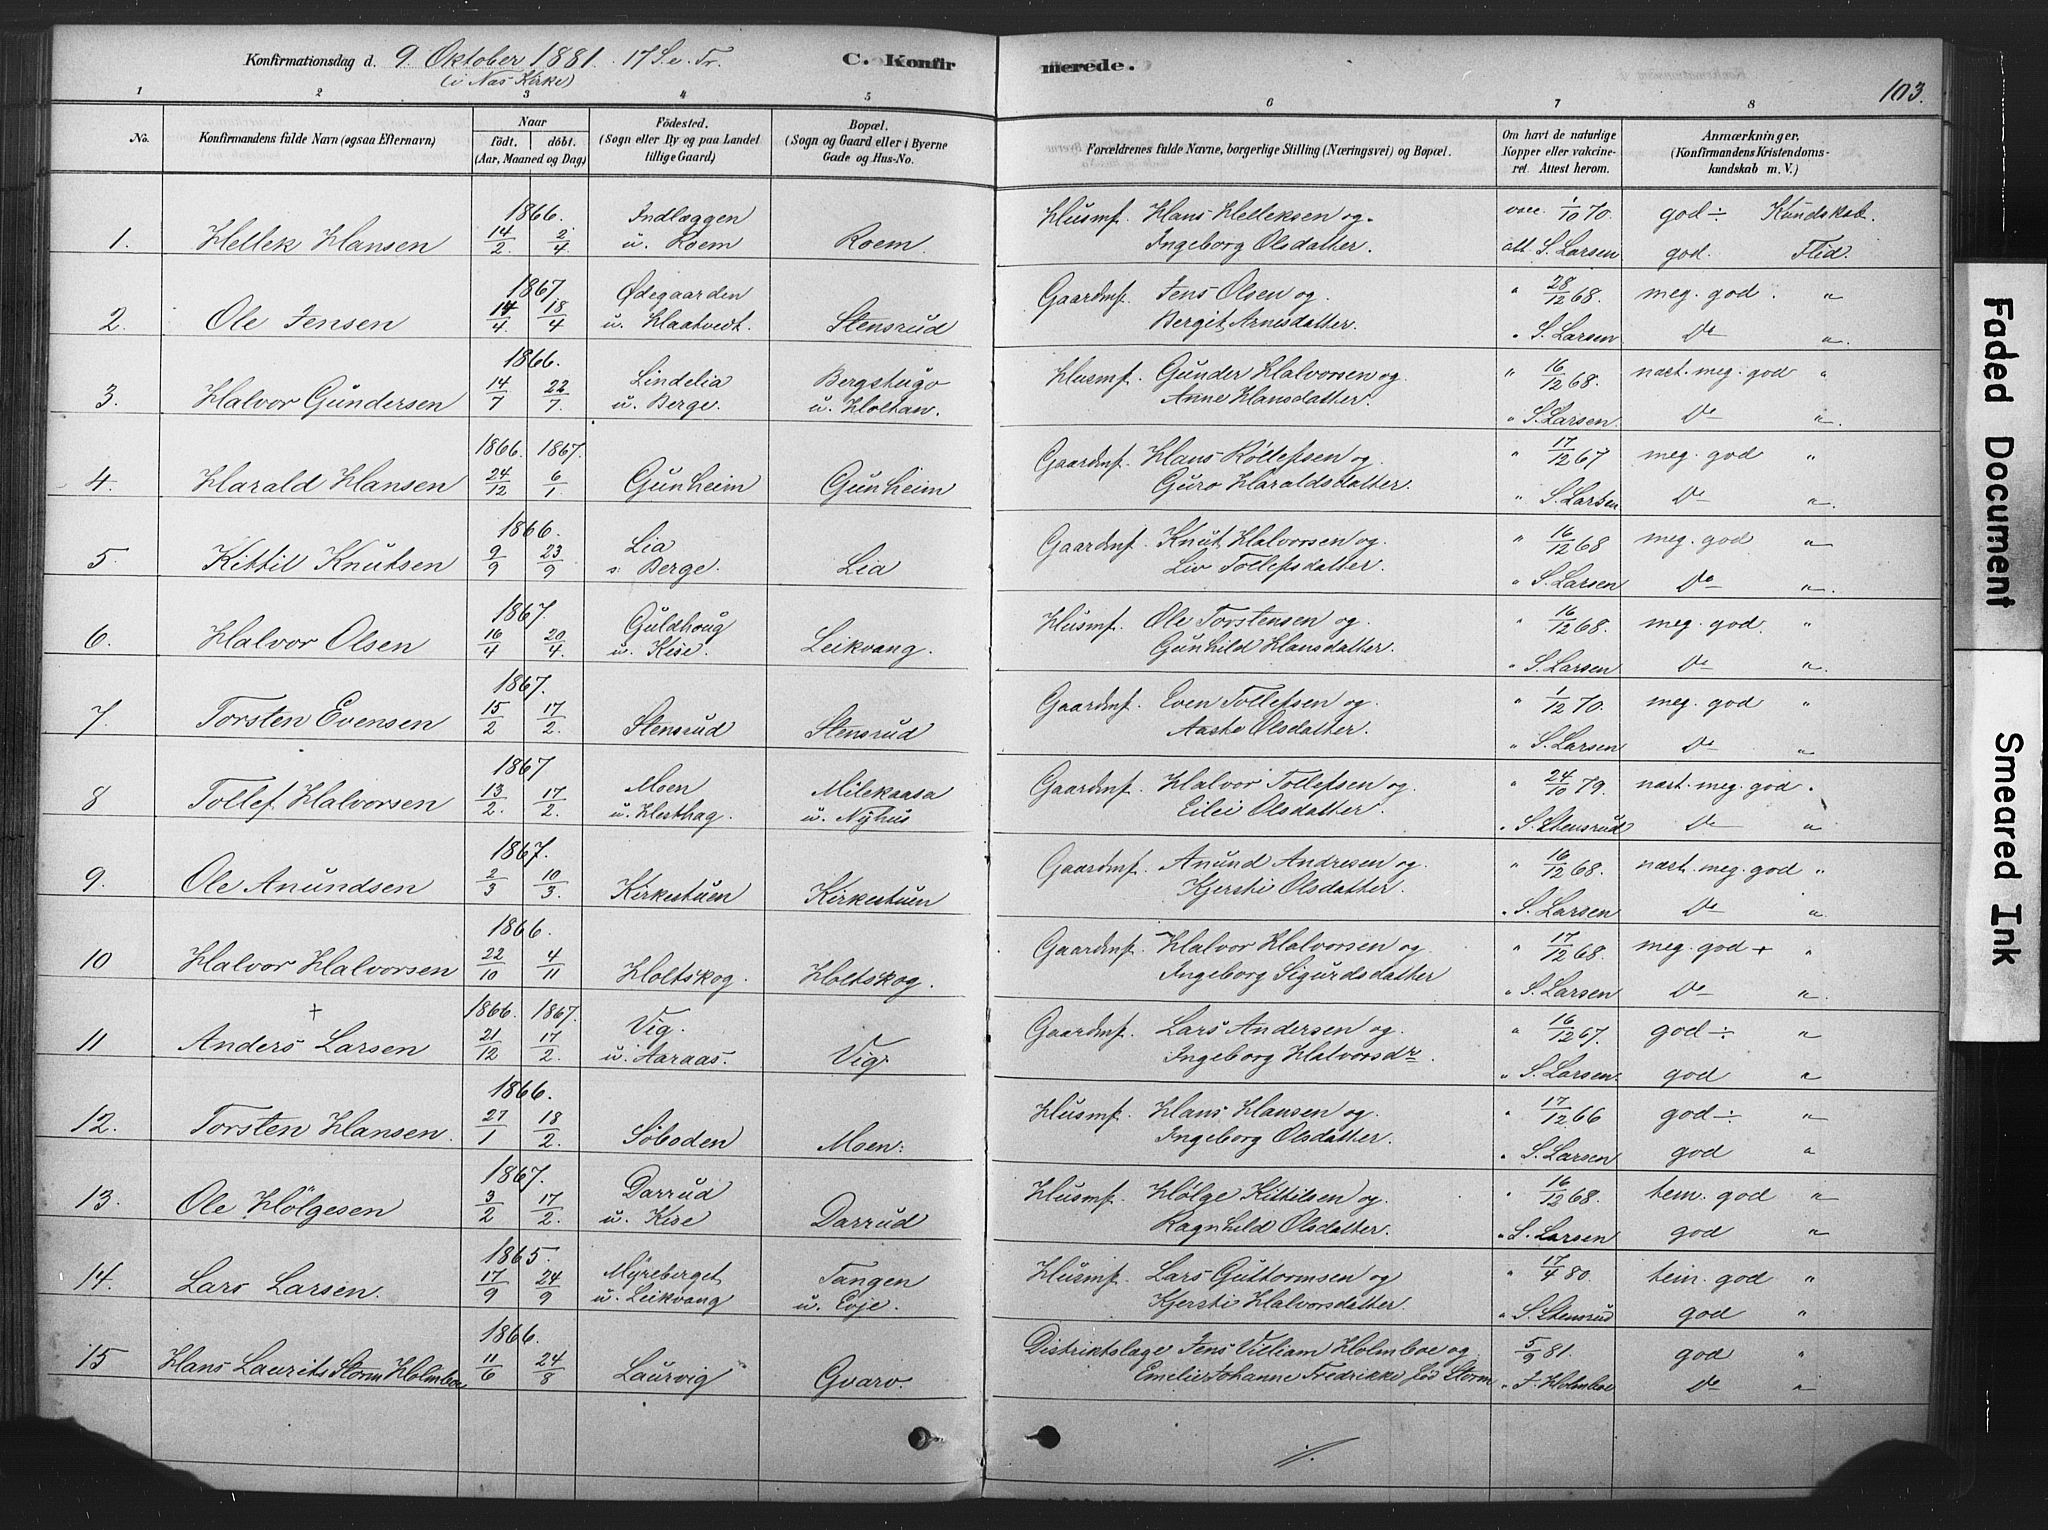 Konfirmationsdag d. 9. Oktober 1881. 17 S. e. Tr. C. Konfirmerede. 103.
(i Næs Kirke)
1 2 3 4 5 6 7 8
No. Konfirmandens fulde Navn (ogsaa Efternavn) Naar födt. döbt. (Aar, Maaned og Dag) Födested. (Sogn eller By og paa Landet tillige Gaard) Bopæl. (Sogn og Gaard eller i Byerne Gade og Hus-No. Forældrenes fulde Navne, borgerlige Stilling (Næringsvei) og Bopæl. Om havt de naturlige Kopper eller vakcineret. Attest herom. Anmærkninger. (Konfirmandens Kristendomskundskab m. V.)
1866. Indlæggen Husmf. Hans Helleksen og vacc. 1/10 70. god ÷ Kundskab.
1. Hellek Hansen 14/2. 2/4 u. Roem Roem. Ingeborg Olsdatter. att. S. Larsen god. Flid.
1867. Ødegaarden Gaardmf. Jens Olsen og " 28/12 68. meg. god. "
2. Ole Jensen 14/4 18/4 u. Klaatvedt. Stensrud Bergit Arnesdatter. " S. Larsen Do "
1866. Lindelia Bergstugo Husmf. Gunder Halvorsen og " 16/12 68. næst. meg. god "
3. Halvor Gundersen 14/7 22/7. u. Berge. u. Holtan. Anne Hansdatter. " S. Larsen Do "
1866. 1867. Gaardmf. Hans Rollefsen og " 17/12 67 meg. god "
4. Harald Hansen 24/12 6/1. Gunheim Gunheim Guro Haraldsdatter. " S. Larsen Do "
1866. Lia Gaardmf. Knut Halvorsen og " 16/12 68 meg. god "
5. Kittil Knutsen 9/9 23/9 s. Berge. Lia Liv Tollefsdatter. " S. Larsen Do "
1867. Guldhoug Husmf. Ole Torstensen og " 16/12 68. meg. god. "
6. Halvor Olsen 16/4 20/4. u. Kise. Leikvang. Gunhild Hansdatter. " S. Larsen Do "
1867. Gaardmf. Even Tollefsen og " 1/12 70. meg. god "
7. Torsten Evensen 15/2 17/2. Stensrud Stensrud Aaste Olsdatter. " S. Larsen Do "
1867 Moen Mileksaasa Gaardmf. Halvor Tollefsen og " 24/10 79. næst. meg. god "
8 Tollef Halvorsen 13/2. 17/2. u. Herthag. u. Nyhus Eilei Olsdatter. " S. Stensrud Do "
1867. Gaardmf. Anund Andresen og " 16/12 68. næst. meg. god "
9. Ole Anundsen 2/3 10/3. Kirkestuen Kirkestuen Kjersti Olsdatter. " S. Larsen Do "
1866. Gaardmf. Halvor Halvorsen og " 17/12 68. meg. god + "
10 Halvor Halvorsen 22/10 4/11 Holtskog. Holtskog. Ingeborg Sigurdsdatter " S. Larsen Do "
+ 1866. 1867. Vig. Gaardmf. Lars Andersen og " 16/12 67. god ÷ "
11 Anders Larsen 21/12 17/2. u. Aaraas. Vig. Ingeborg Halvorsdr. " S. Larsen. god "
1866. Husmf. Hans Hansen og " 17/12 66 god ÷ "
12. Torsten Hansen. 27/1 18/2. Söboden Moen. Ingeborg Olsdatter. " S. Larsen god "
1867. Darrud Husmf. Hølge Kittilsen og " 16/12 68. tem. god "
13. Ole Hølgesen 3/2 17/2. u. Kise Darrud Ragnhild Olsdatter. " S. Larsen god "
1865. Myreberget Tangen Husmf. Lars Guttormsen og " 17/4 80. tem. god "
14. Lars Larsen. 17/9 24/9 u. Leikvang u. Evje. Kjersti Halvorsdatter. " S. Stensrud god "
1866. Distriktslæge Jens Villiam Holmboe og 5/9 81. god "
15 Hans Laurits Storm Holmboe 11/6 24/8 Laurvig Gvarv. Emilie Johanne Fredrikke fød Storm " J. Holmboe Do "
Faded Document
Smeared Ink